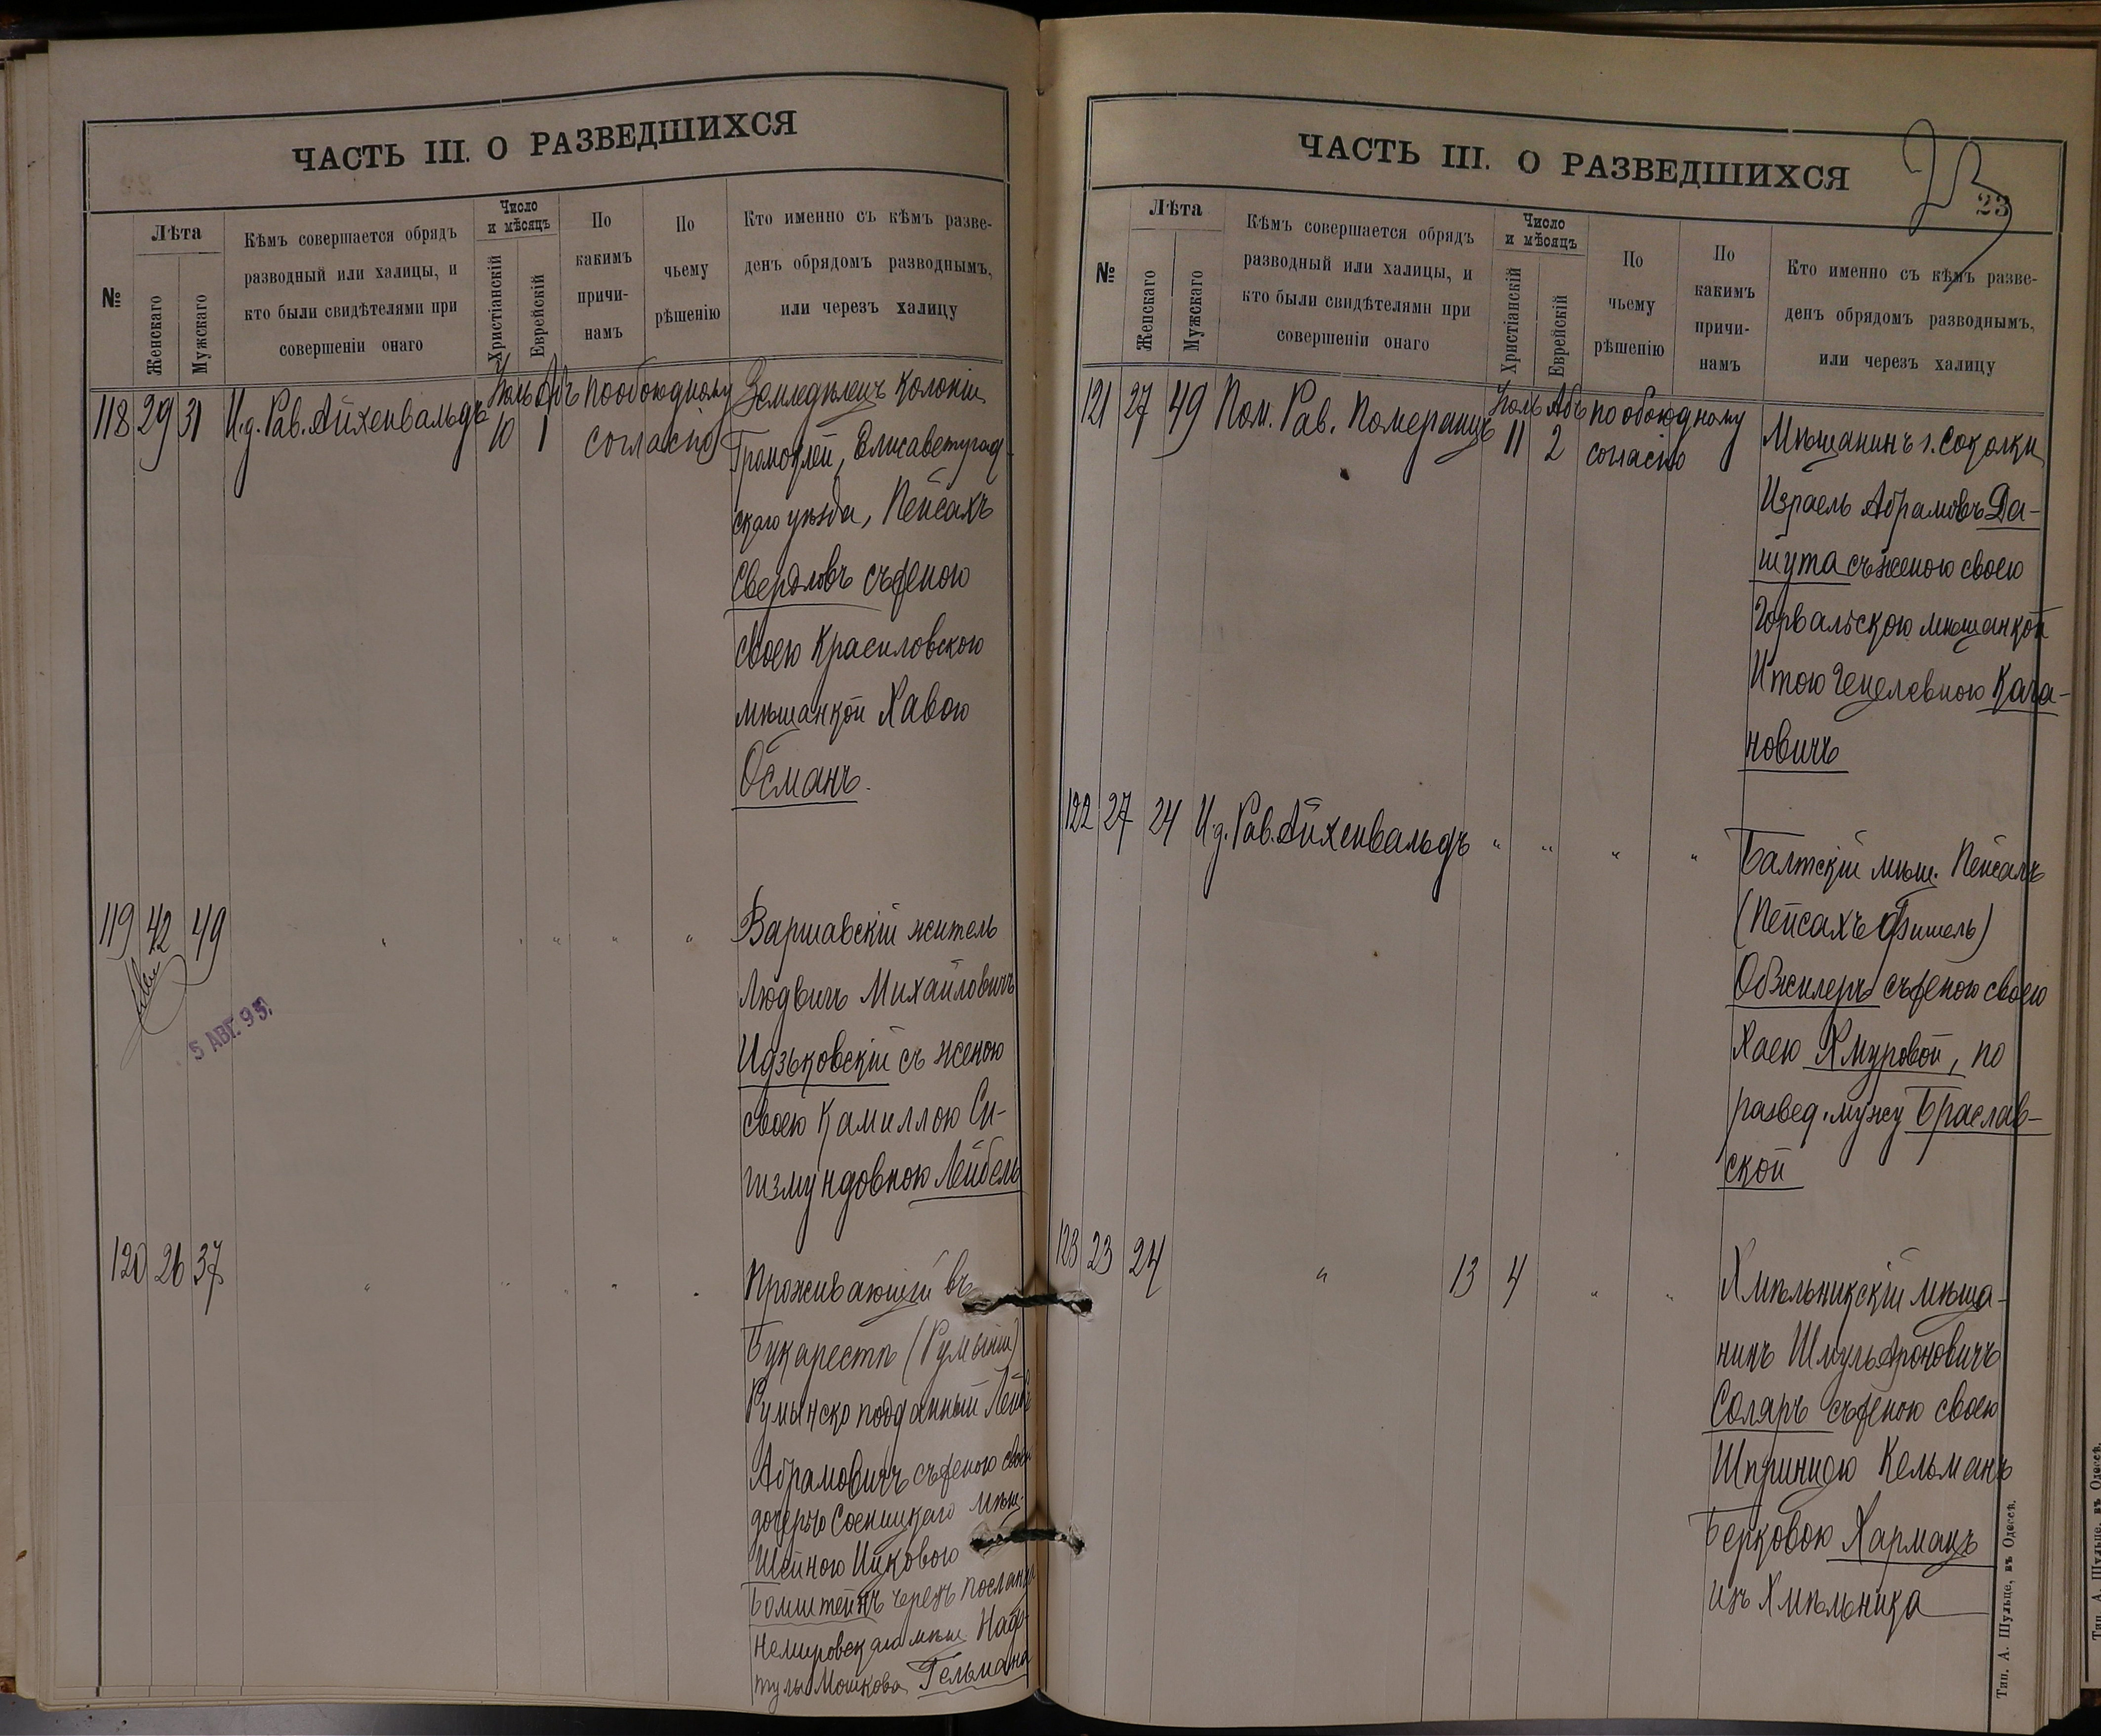 ЧАСТЬ III. О РАЗВЕДШИХСЯ
№
Лѣта
Женскаго
Мужскаго
Кѣмъ совершается обрядъ
разводный или халицы, и
кто были свидѣтелями при
совершеніи онаго
Число
и мѣсяцъ
Христіанскій
Еврейскій
По
какимъ
причи-
намъ
По
чьему
рѣшенію
Кто именно съ кѣмъ разве-
денъ обрядомъ разводнымъ,
или черезъ халицу
118 29 31 И.д. Рав. Айхенвальдъ Іюль 10 Абъ 1 по обоюдному
согласію
Земледѣлецъ колоніи
Громоклей, Елисаветград-
скаго уѣзда, Пейсахъ
Свердловъ съ женою
своею Красиловскою
мѣщанкой Хавою
Османъ.
119 42 49 " " " " "
5 АВГ. 95
Варшавскій житель
Людвигъ Михайловичъ
Идзьковскій съ женою
своею Камиллою Си-
гизмундовною Лейбель
120 26 37 " " " " "
Проживающій въ
Букарестѣ (Румыніи)
Румынско подданный
Абрамовичъ съ женою своею
дочерью мѣщ.
Шейною Ицковою
Бомштейнъ черезъ посланца
Немировскаго мѣщ. Наф-
тулы Мошкова Гельмана
ЧАСТЬ III. О РАЗВЕДШИХСЯ
23
23
№
Лѣта
Женскаго
Мужскаго
Кѣмъ совершается обрядъ
разводный или халицы, и
кто были свидѣтелями при
совершеніи онаго
Число
и мѣсяцъ
Христіанскій
Еврейскій
По
чьему
рѣшенію
По
какимъ
причи-
намъ
Кто именно съ кѣмъ разве-
денъ обрядомъ разводнымъ,
или черезъ халицу
121 27 49 Пом. Рав. Померанцъ Іюль 11 Абъ 2 по обоюдному
согласію
Мѣщанинъ г. Соколки
Израель Абрамовъ Да-
шута съ женою своею
Горвальскою мѣщанкой
Итою Гецелевною Кага-
новичъ
122 27 24 И.д. Рав. Айхенвальдъ " " " "
Балтскій мѣщ. Пейсахъ
(Пейсахъ Фишель)
Обжилеръ съ женою своею
Хаею Хмуровой, по
развед. мужу Браслав-
ской
123 23 24 " 13 4 " "
Хмѣльникскій мѣща-
нинъ Шмуль Ароновичъ
Соляръ съ женою своею
Шпринцою Кельманъ
Берковою Харманъ
изъ Хмѣльника
Тип. А. Шульце, въ Одессѣ.
Тип. А. Шульце, въ Одессѣ.